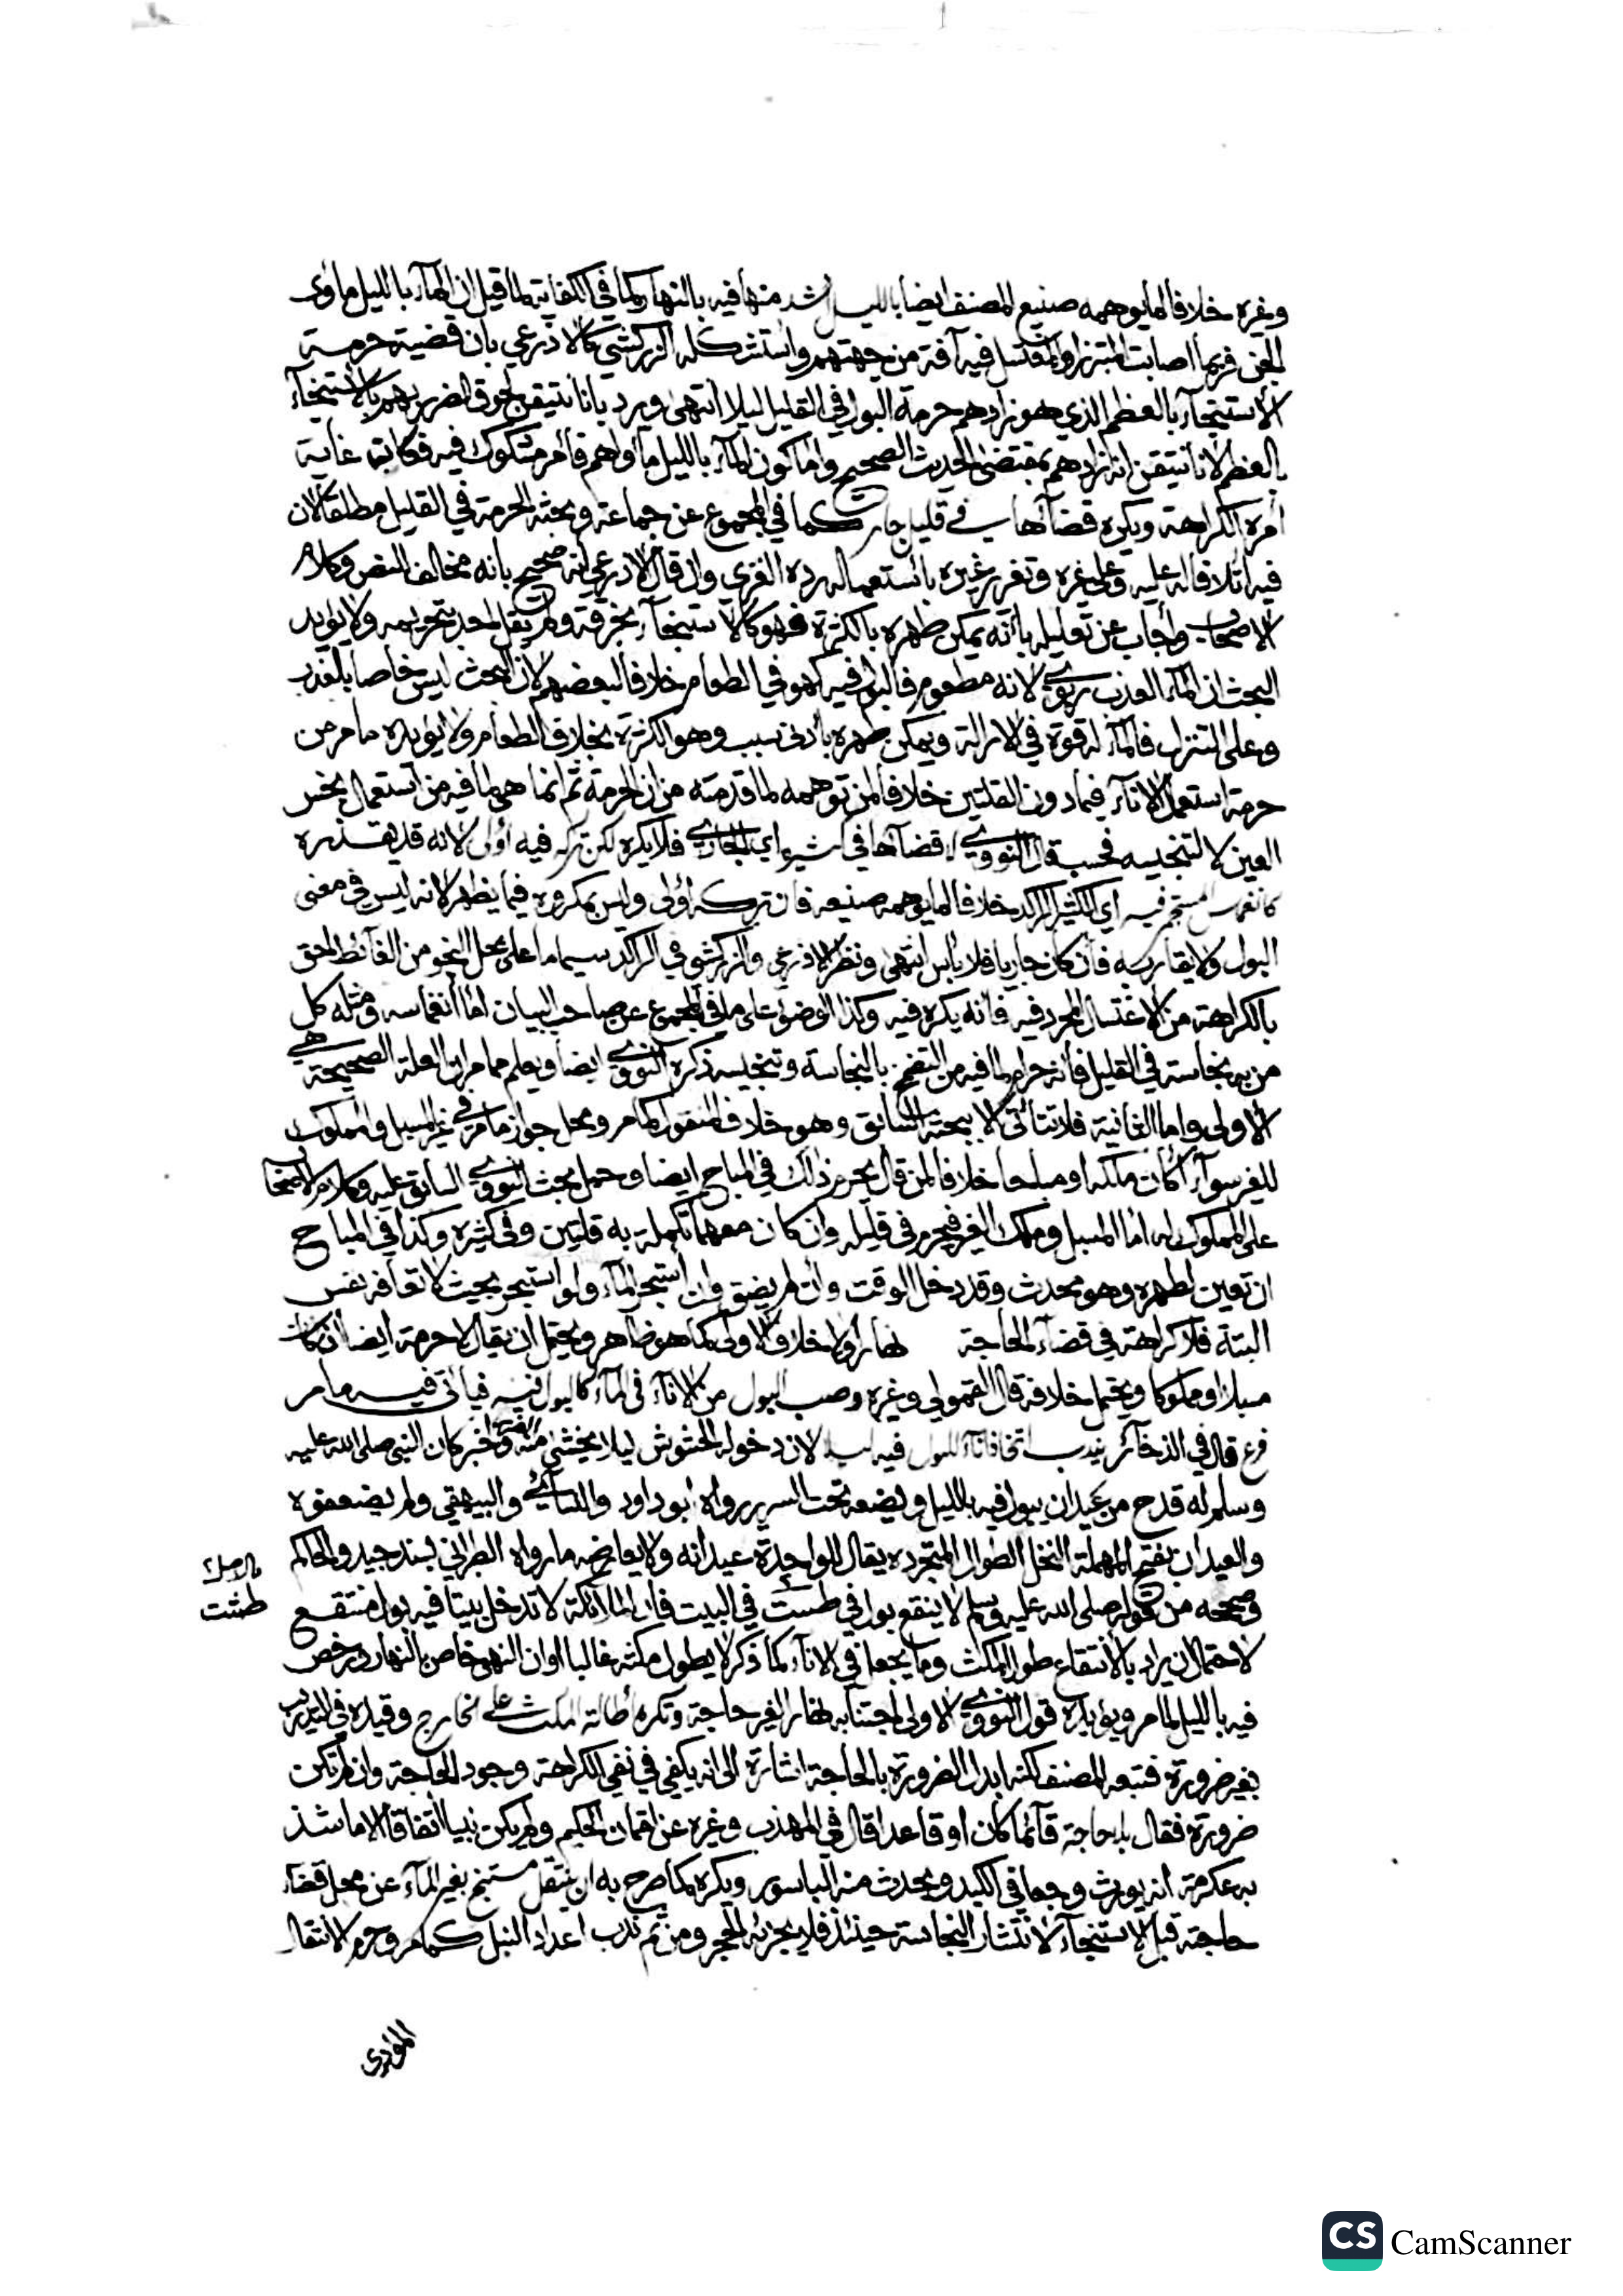 وغيره خلافا لما يوهمه صنيع المصنف ايضا بالليل اشد منها فيه بالنهار كما في الكفاية لما قيل ان المآء بالليل مأوى
الجن فربما اصابت المتبرز او المغتسل فيه آفة من جهتهم واستشكله الزركشي كالاذرعي بان قضية حرمة
الاستنجآء بالعظم الذي هو زادهم حرمة البول في القليل ليلا انتهى ويرد بانا نتيقن لحوق الضرر بهم بالاستنجآء
بالعظم لانا نتيقن انه زادهم بمقتضى الحديث الصحيح واما كون المآء بالليل مأواهم فأمر مشكوك فيه فكانت غاية
امره الكراهة ويكره قضآءها في قليل جار كما في المجموع عن جماعة وبحثه الحرمة في القليل مطلقا لان
فيه اتلافا له عليه وعلى غيره وتغرير غيره باستعماله رده الغزي وان قال الاذرعي انه صحيح بانه مخالف للنص وكلام
الاصحاب واجاب عن تعليله بانه يمكن طهره بالكثرة فهو كالاستنجآء بخرقة ولم يقل احد بتحريمه ولا يؤيد
البحث ان المآء العذب ربوي لانه مطعوم فالبول فيه كهو في الطعام خلافا لبعضهم لان البحث ليس خاصا بالعذب
وعلى التنزل فالمآء له قوة في الازالة ويمكن طهره بأدنى سبب وهو الكثرة بخلاف الطعام ولا يؤيده ما مر من
حرمة استعمال الانآء فيما دون القلتين خلافا لمن توهمه لما قدمته من ان الحرمة ثم انما هي لما فيه من استعمال نجس
العين لا لتنجيسه فحسب قال النووي قضآءها في كثير اي الجاري فلا يكره لكن تركه فيه اولى لانه قد يقذره
كانغماس مستجمر فيه اي الكثير الراكد خلافا لما يوهمه صنيعه فان تركه اولى وليس بمكروه فيما يظهر لانه ليس في معنى
البول ولا يقاربه فان كان جاريا فلا بأس انتهى ونظر الاذرعي والزركشي في الراكد سيما ما على محل النجو من الغآئط احق
بالكراهة من الاغتسال المجرد فيه فانه يكره فيه وكذا الوضوء على ما في المجموع عن صاحب البيان اما انغماسه ومثله كل
من به نجاسة في القليل فانه حرام لما فيه من التضمخ بالنجاسة وتنجيسه ذكره النووي ايضا ويعلم مما مر ان العلة الصحيحة هي
الاولى واما الثانية فلا تتأتى الا ببحثه السابق وهو خلاف المنقول كما مر ومحل جواز ما مر في غير المسبل والمملوك
للغير سوآء أكان ملكه او مباحا خلافا لمن قال يحرم ذلك في المباح ايضا وحمل بحث النووي السابق عليه وكلام الاصحا
على المملوك له اما المسبل وملك الغير فيحرم في قليله وان كان معه ما تكمله به قلتين وفي كثيره وكذا في المباح
ان تعين لطهره وهو محدث وقد دخل الوقت وان لم يضق وان استبحر المآء ولو استبحر بحيث لا تعافه نفس
البتة فلا كراهة في قضآء الحاجة نهارا ولا خلاف الاولى كما هو ظاهر ويحتمل ان يقال لا حرمة ايضا ان كان
مسبلا او مملوكا ويحتمل خلافه قال القمولي وغيره وصب البول من الانآء في المآء كالبول فيه فيأتي فيه ما مر
فرع قال في الذخآئر يندب اتخاذ انآء للبول فيه ليلا لان دخوله الحشوش ليلا يخشى منه ولخبر كان النبي صلى الله عليه
وسلم له قدح من عيدان يبول فيه بالليل ويضعه تحت السرير رواه ابو داود والنسآئي والبيهقي ولم يضعفوه
والعيدان بفتح المهملة النخل الطوال المتجرده يقال للواحدة عيدانه ولا يعارضه ما رواه الطبراني بسند جيد والحاكم
وصححه من قوله صلى الله عليه وسلم لا ينقع بول في طست في البيت فان الملآئكة لا تدخل بيتا فيه بول منتقع
بالاصل
طشت
لاحتمال ان يراد بالانتقاع طول المكث وما يجعل في الانآء كما ذكر لا يطول مكثه غالبا او ان النهي خاص بالنهار ورخص
فيه بالليل لما مر ويؤيده قول النووي الاولى اجتنابه نهارا لغير حاجة وتكره اطالة المكث على الخارج وقيده في
بغير ضرورة فتبعه المصنف لكنه ابدل الضرورة بالحاجة اشارة الى انه يكفي في نفي الكراهة وجود الحاجة وان لم تكن
ضرورة فقال بلا حاجة قآئما كان او قاعدا قال في المهذب وغيره عن لقمان الحكيم ولم يكن نبيا اتفاقا الا ما شذ
به عكرمة انه يورث وجعا في الكبد ويحدث منه الباسور ويكره كما صرح به ان ينتقل مستنج بغير المآء عن محل قضآء
حاجته قبل الاستنجآء لانتشار النجاسة حينئذ فلا يجزئه الحجر ومن ثم ندب اعداد النبل كما مر وحرم الانتقال
المؤدي
CS CamScanner